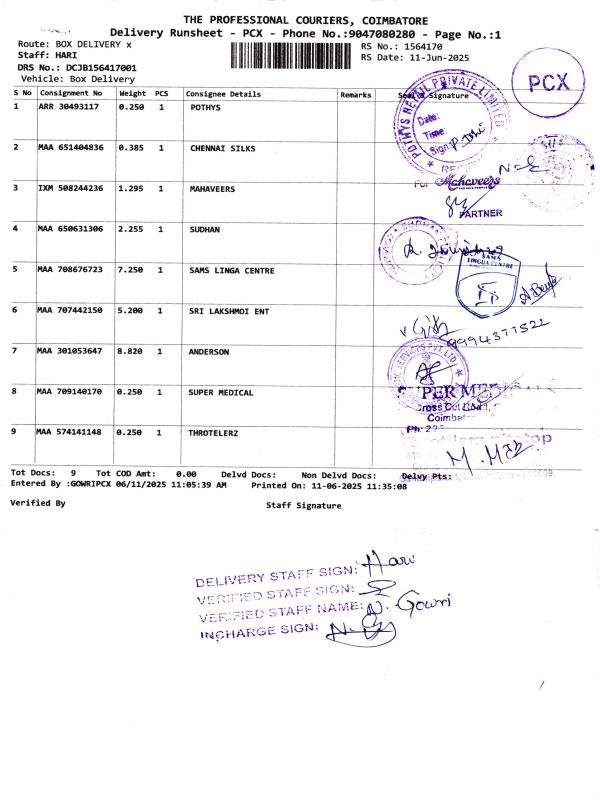 THE PROFESSIONAL COURIERS, COIMBATORE
Delivery Runsheet - PCX - Phone No.:9047080280 - Page No.:1
Route: BOX DELIVERY x
RS No.: 1564170
Staff: HARI
RS Date: 11-Jun-2025
DRS No.: DCJB156417001
Vehicle: Box Delivery
PCX
S No Consignment No Weight PCS Consignee Details Remarks Seal & Signature
1 ARR 30493117 0.250 1 POTHYS
POTHYS RETAIL PRIVATE LIMITED
Date:
Time:
Sign
2 MAA 651404836 0.385 1 CHENNAI SILKS
3 IXM 508244236 1.295 1 MAHAVEERS
For Mahaveers
PARTNER
4 MAA 650631306 2.255 1 SUDHAN
5 MAA 708676723 7.250 1 SAMS LINGA CENTRE
SAMS
LINGUA CENTRE
6 MAA 707442150 5.200 1 SRI LAKSHMOI ENT
9994377522
7 MAA 301053647 8.820 1 ANDERSON
8 MAA 709140170 0.250 1 SUPER MEDICAL
SUPER
Cross Cut Road,
Coimbat
Ph:
9 MAA 574141148 0.250 1 THROTELERZ
Tot Docs: 9 Tot COD Amt: 0.00 Delvd Docs: Non Delvd Docs: Delvy Pts:
Entered By :GOWRIPCX 06/11/2025 11:05:39 AM Printed On: 11-06-2025 11:35:08
Verified By Staff Signature
DELIVERY STAFF SIGN: Hari
VERIFIED STAFF SIGN:
VERIFIED STAFF NAME: N. Gowri
INCHARGE SIGN: